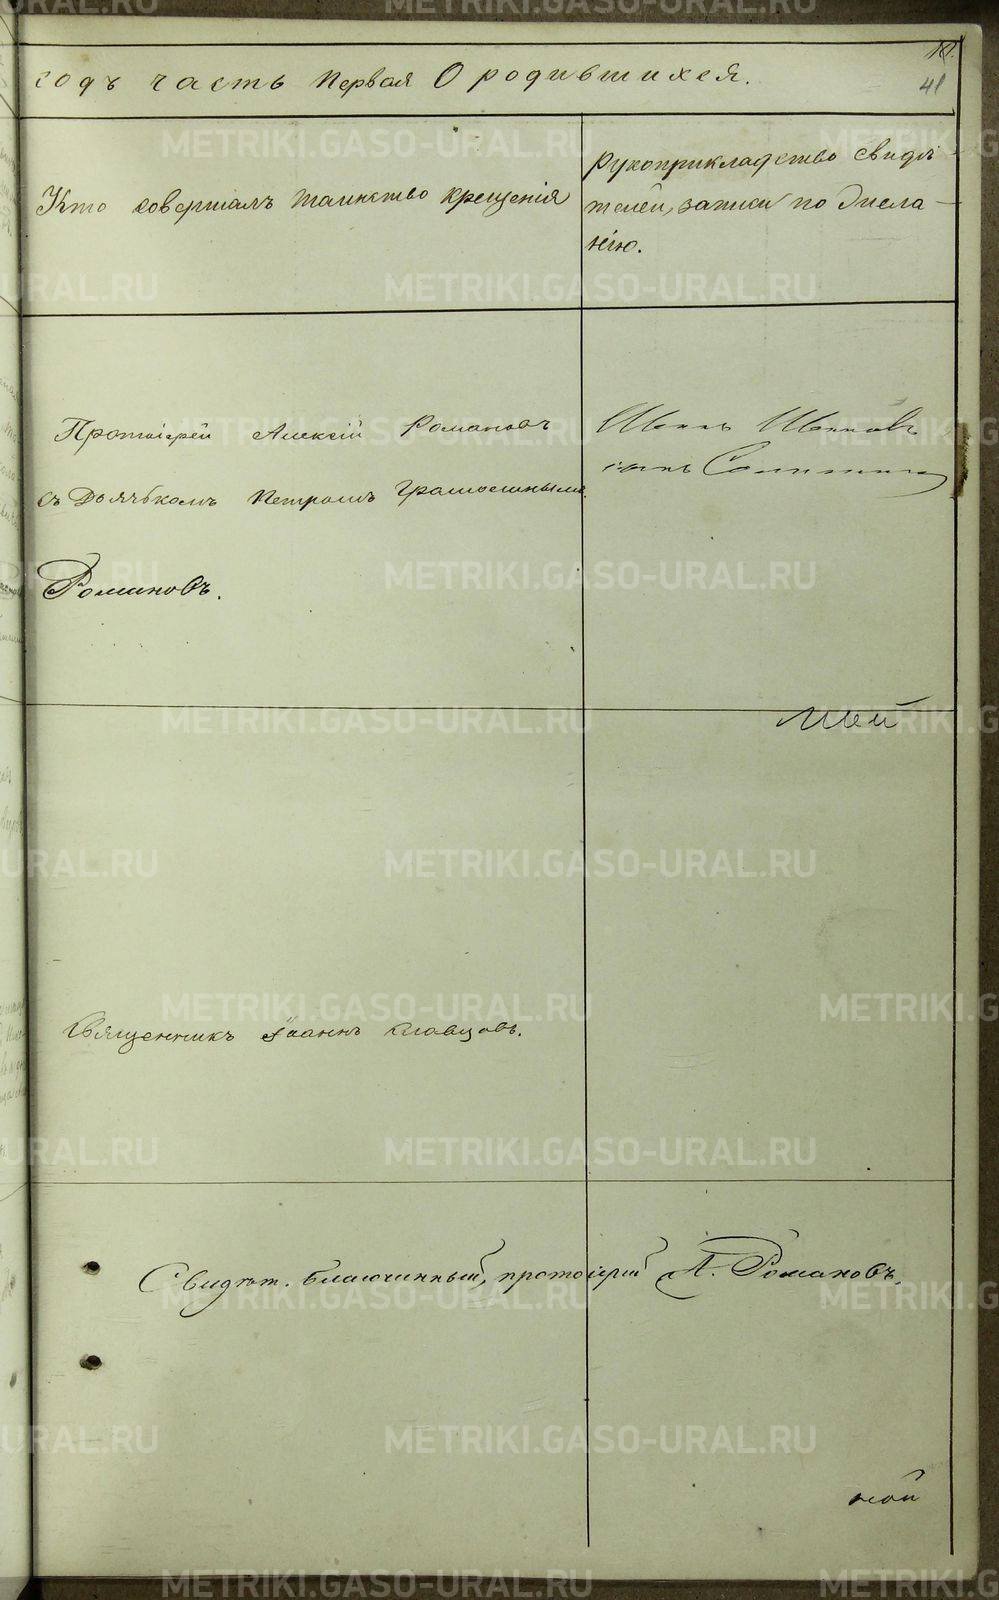 10.
41
годъ часть первая О родившихся.
Кто совершалъ таинство крещенія
Рукоприкладство свидѣ-
телей, записи по желa-
нію.
Протоіерей Алексій Романовъ
съ Дьячькомъ Петромъ
Романовъ.
Иванъ Ивановъ
Священникъ Іоаннъ
Свидѣт. благочинный, протоіерей А. Романовъ.
METRIKI.GASO-URAL.RU